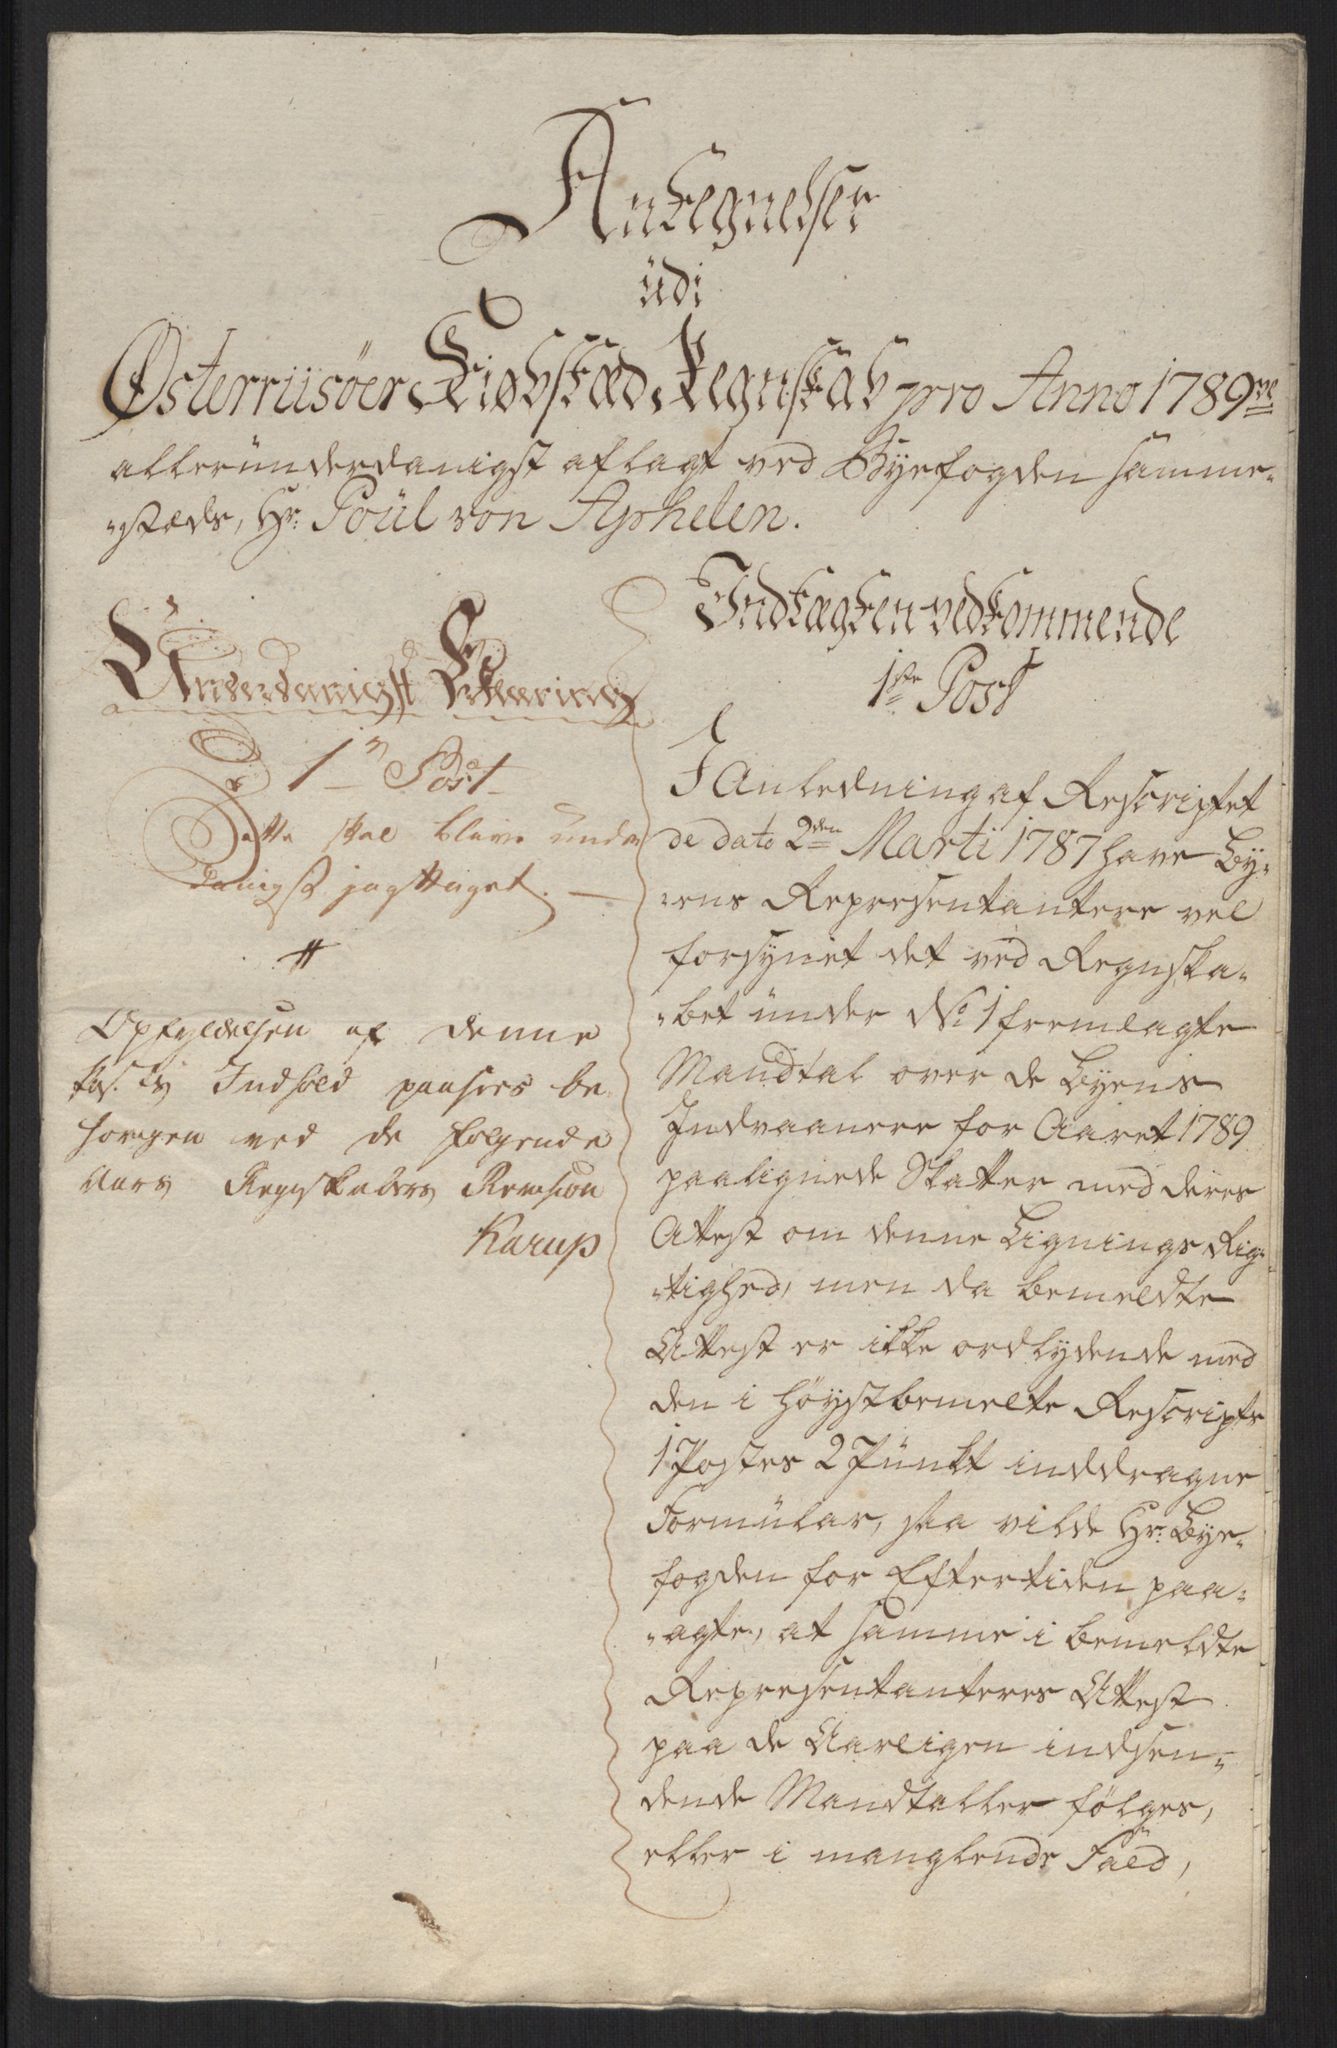 Antegnelser
udi
Østerriisöer Kiøbstæd Regnskab pro Anno 1789ve
alleründerdanigst aflagt ved Byefogden samme-
-stæds, Hr: Poül von Aphelen.
Underdanigst Erklæring
1n Post
Dette skal blive under
danigst jagttaget. —
#
Opfyldelsen af denne
Indhold paasees be
sørgen ved de følgende
Aars Regnskabers Revision
Karup
Indtægten vedkommende
1ste Post
I Anledning af Rescriptet
de dato 2den Marti 1787 have By-
-ens Representantere vel
forsynet det ved Regnska-
-bet ünder No: 1 fremlagte
Mandtal over de Byens
Indvaanere for Aaret 1789
paalignede Skatter med deres
Attest om denne Lignings Rig-
-tighed, men da bemeldte
Attest er ikke ordlydende med
den i høystbemelte Rescripts
1 Postes 2 Pünkt inddragne
Formülar, saa vilde Hr: Bye-
fogden for Eftertiden paa-
-agte, at samme i bemeldte
Representanteres Attest
paa de Aarligen indsen-
dende Mandtaller følges,
eller i manglende Fald,